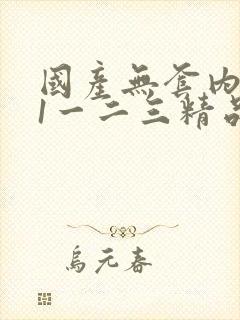 國產無套内
1一二三精品
烏元春